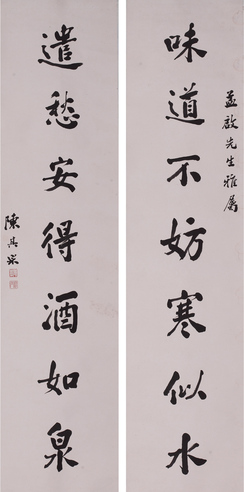 孟啟先生雅屬
味道不妨寒似水
遣愁安得酒如泉
陳其采